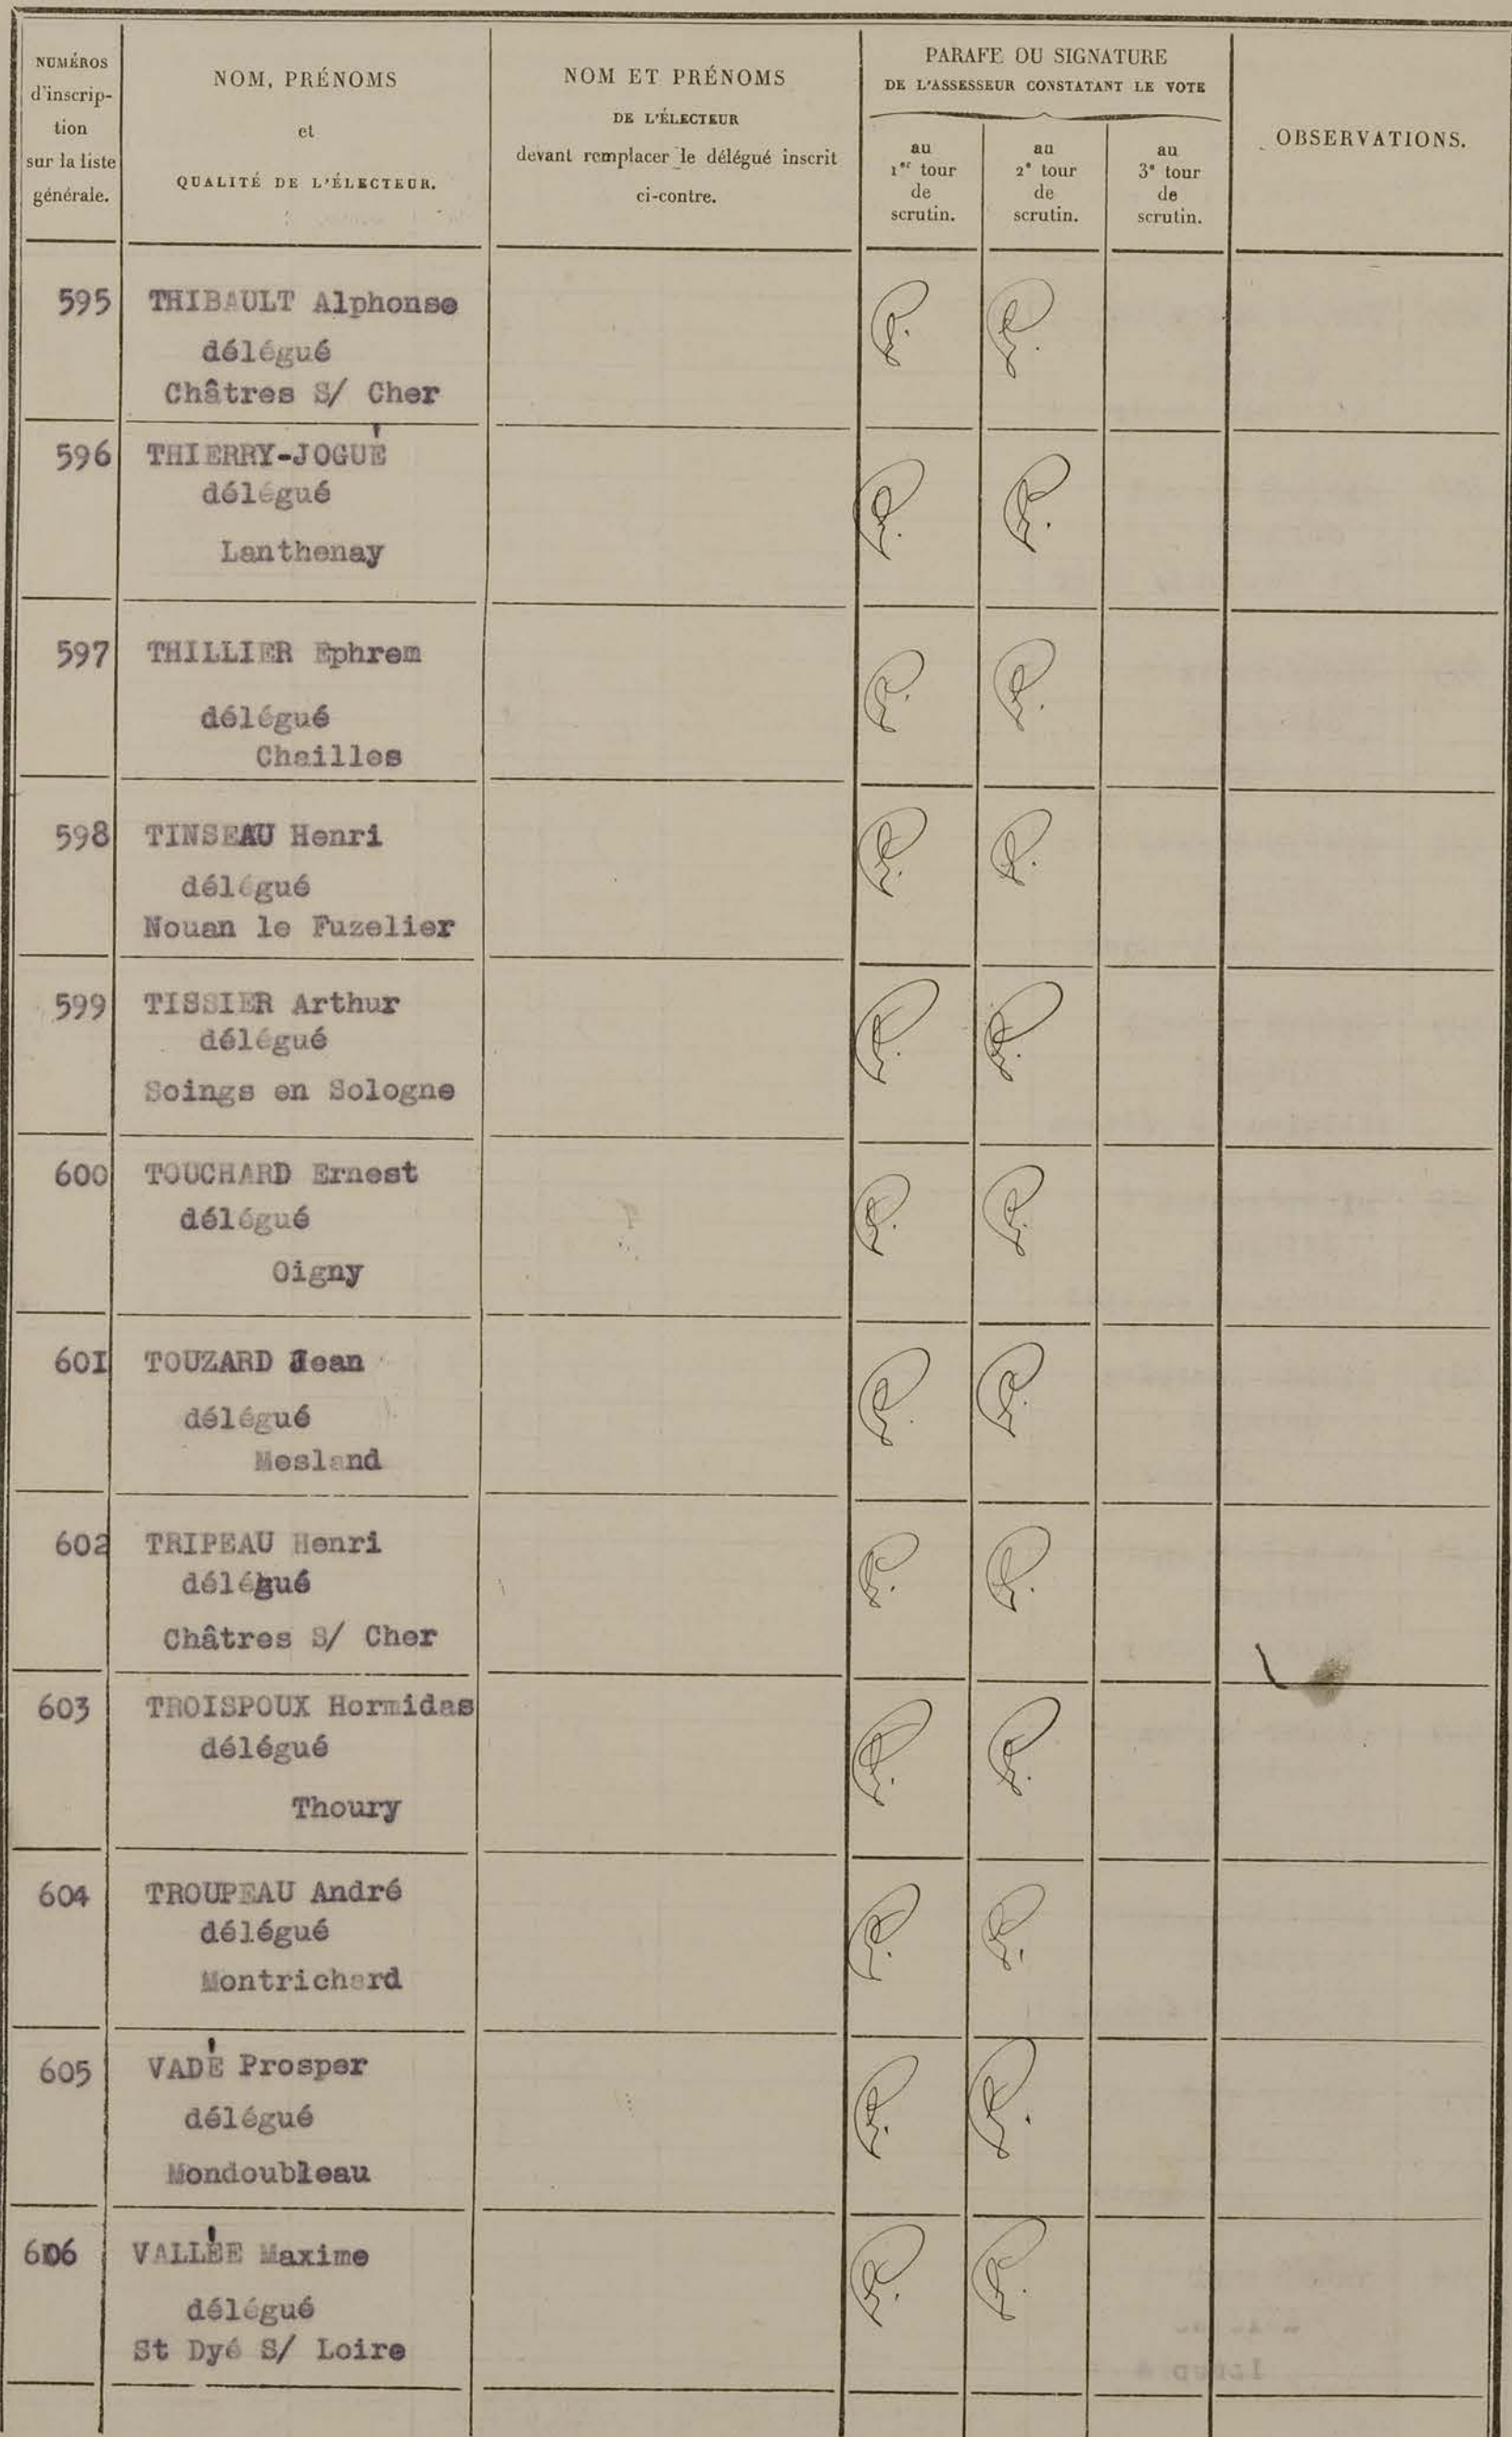 NUMÉROS
d'inscrip-
tion
sur la liste
générale.
NOM, PRÉNOMS
et
QUALITÉ DE L'ÉLECTEUR.
NOM ET PRÉNOMS
DE L'ÉLECTEUR
devant remplacer le délégué inscrit
ci-contre.
PARAFE OU SIGNATURE
DE L'ASSESSEUR CONSTATANT LE VOTE
au
1er tour
de
scrutin.
au
2e tour
de
scrutin.
au
3e tour
de
scrutin.
OBSERVATIONS.
595 THIBAULT Alphonse
délégué
Châtres S/ Cher
596 THIERRY-JOGUÉ
délégué
Lanthenay
597 THILLIER Ephrem
délégué
Chailles
598 TINSEAU Henri
délégué
Nouan le Fuzelier
599 TISSIER Arthur
délégué
Soings en Sologne
600 TOUCHARD Ernest
délégué
Oigny
601 TOUZARD Jean
délégué
Mesland
602 TRIPEAU Henri
délégué
Châtres S/ Cher
603 TROISPOUX Hormidas
délégué
Thoury
604 TROUPEAU André
délégué
Montrichard
605 VADÉ Prosper
délégué
Mondoubleau
606 VALLÉE Maxime
délégué
St Dyé S/ Loire